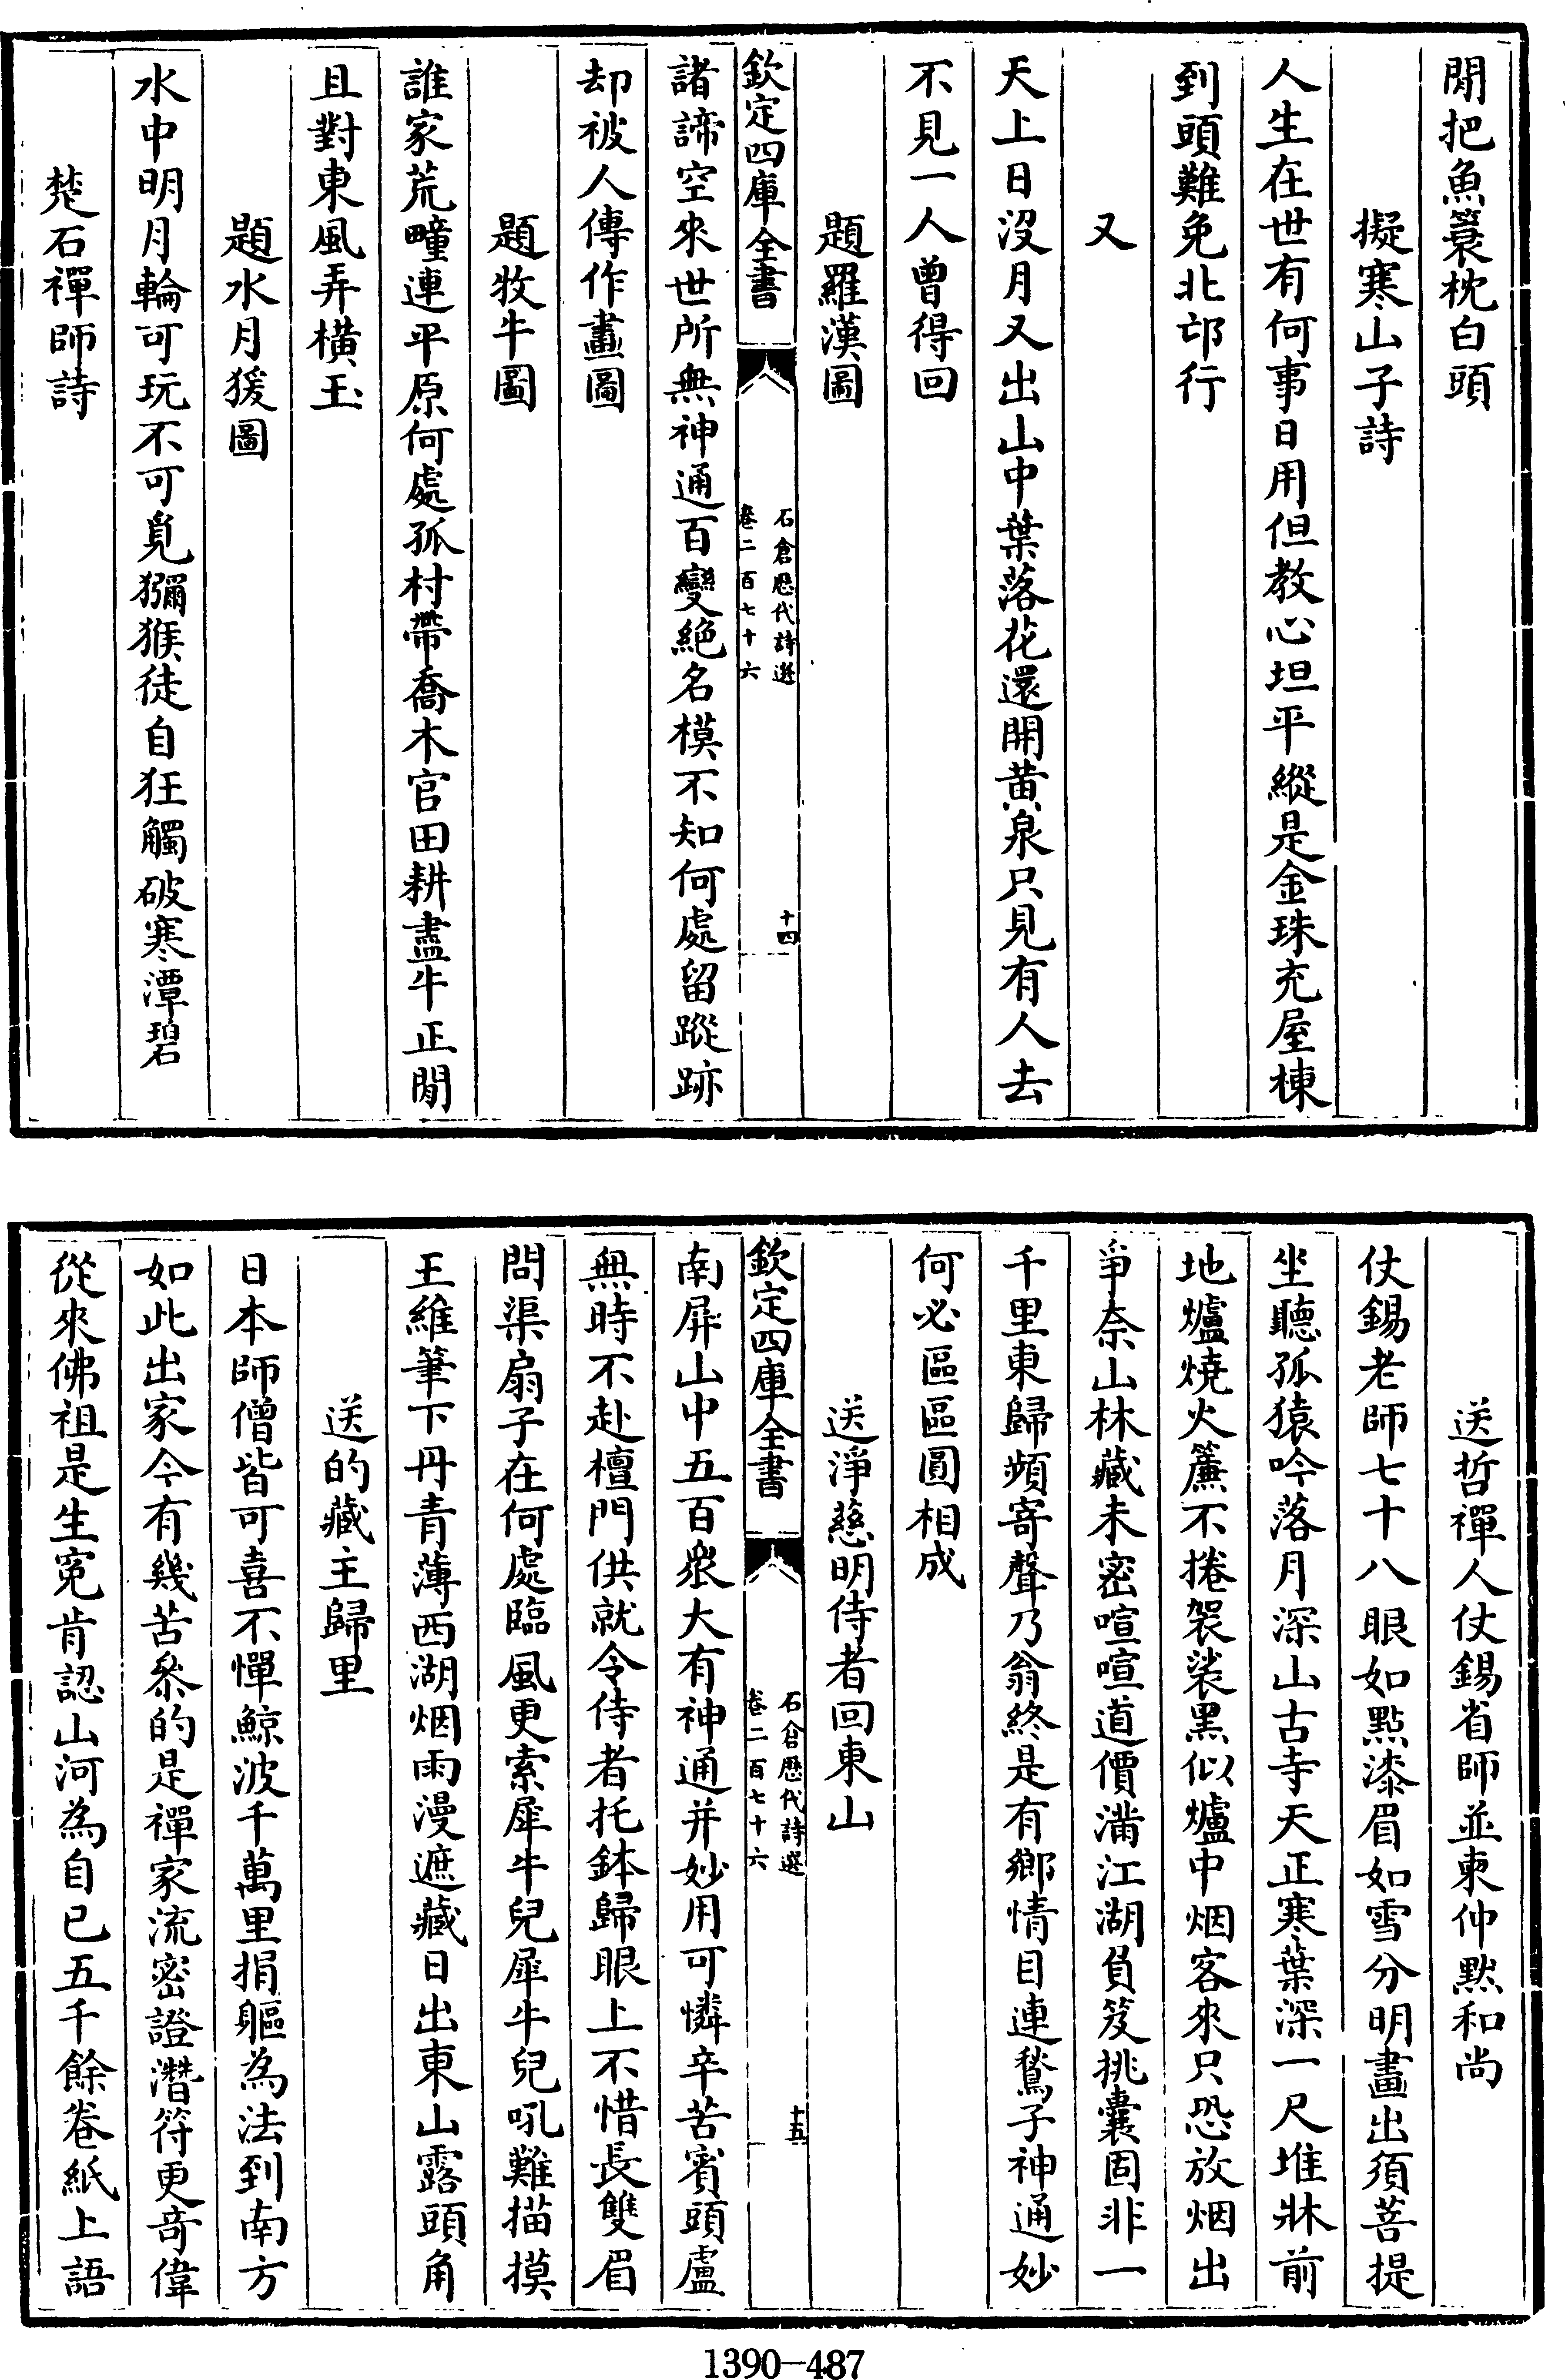 閒把魚蓑枕白頭
擬寒山子詩
人生在世有何事日用但教心坦平縱是金珠充屋棟
到頭難免北邙行
又
天上日沒月又出山中葉落花還開黄泉只見有人去
不見一人曾得回
題羅漢圖
欽定四庫全書
石倉歷代詩選
卷二百七十六
十四
諸諦空來世所無神通百變絶名模不知何處留蹤跡
却被人傳作畫圖
題牧牛圖
誰家荒疃連平原何處孤村帶喬木官田耕盡牛正閒
且對東風弄橫玉
題水月猨圖
水中明月輪可玩不可覓獼猴徒自狂觸破寒潭碧
楚石禪師詩
送哲禪人仗錫省師並柬仲默和尚
仗錫老師七十八眼如點漆眉如雪分明畫出須菩提
坐聽孤猿吟落月深山古寺天正寒葉深一尺堆牀前
地爐燒火簾不捲袈裟黑似爐中烟客來只恐放烟出
爭奈山林藏未密喧喧道價滿江湖負笈挑囊固非一
千里東歸頻寄聲乃翁終是有鄉情目連鶖子神通妙
何必區區圓相成
送淨慈明侍者回東山
欽定四庫全書
石倉歷代詩選
卷二百七十六
十五
南屏山中五百衆大有神通并妙用可憐辛苦賓頭盧
無時不赴檀門供就令侍者托鉢歸眼上不惜長雙眉
問渠扇子在何處臨風更索犀牛兒犀牛兒吼難描摸
王維筆下丹青薄西湖烟雨漫遮藏日出東山露頭角
送的藏主歸里
日本師僧皆可喜不憚鯨波千萬里捐軀為法到南方
如此出家今有幾苦叅的是禪家流密證潛符更竒偉
從來佛祖是生寃肯認山河為自已五千餘卷紙上語
1390-487